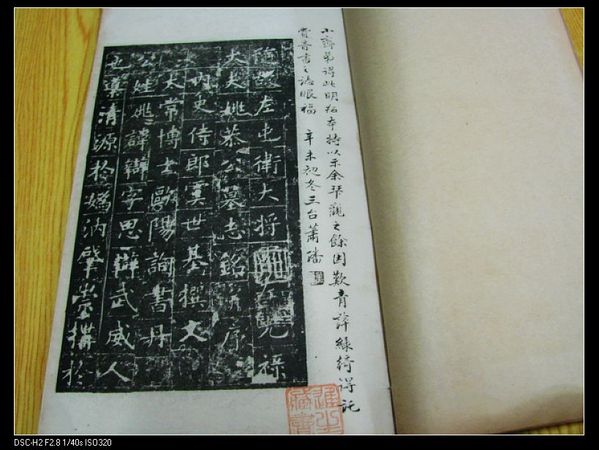 小齋弟得此明拓本持以示余琴觀之餘因歎青萍綠綺得託
賞音書之誌眼福 辛未初冬三台蕭
隋故左屯衛大將軍左光祿
大夫姚恭公墓志銘并序
內史侍郎虞世基撰文
太常博士歐陽詢書丹
公姓姚諱辯字思辯武威人
也導清源於媯汭肇崇構於
DSC-H2 F2.8 1/40s ISO320